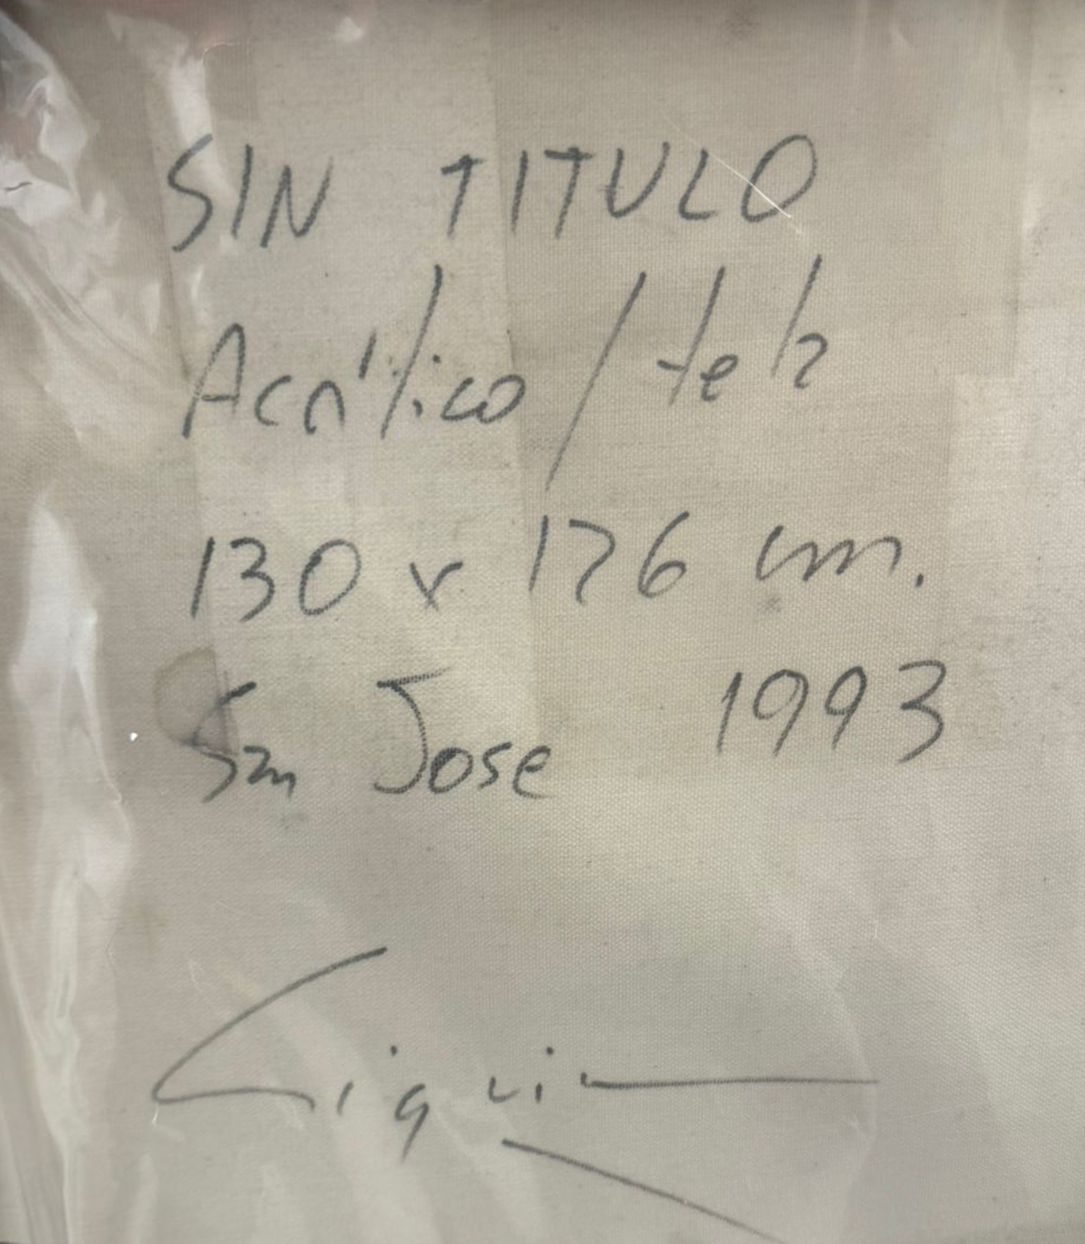 SIN TITULO
Acrílico / tela
130 x 176 cm.
San Jose 1993